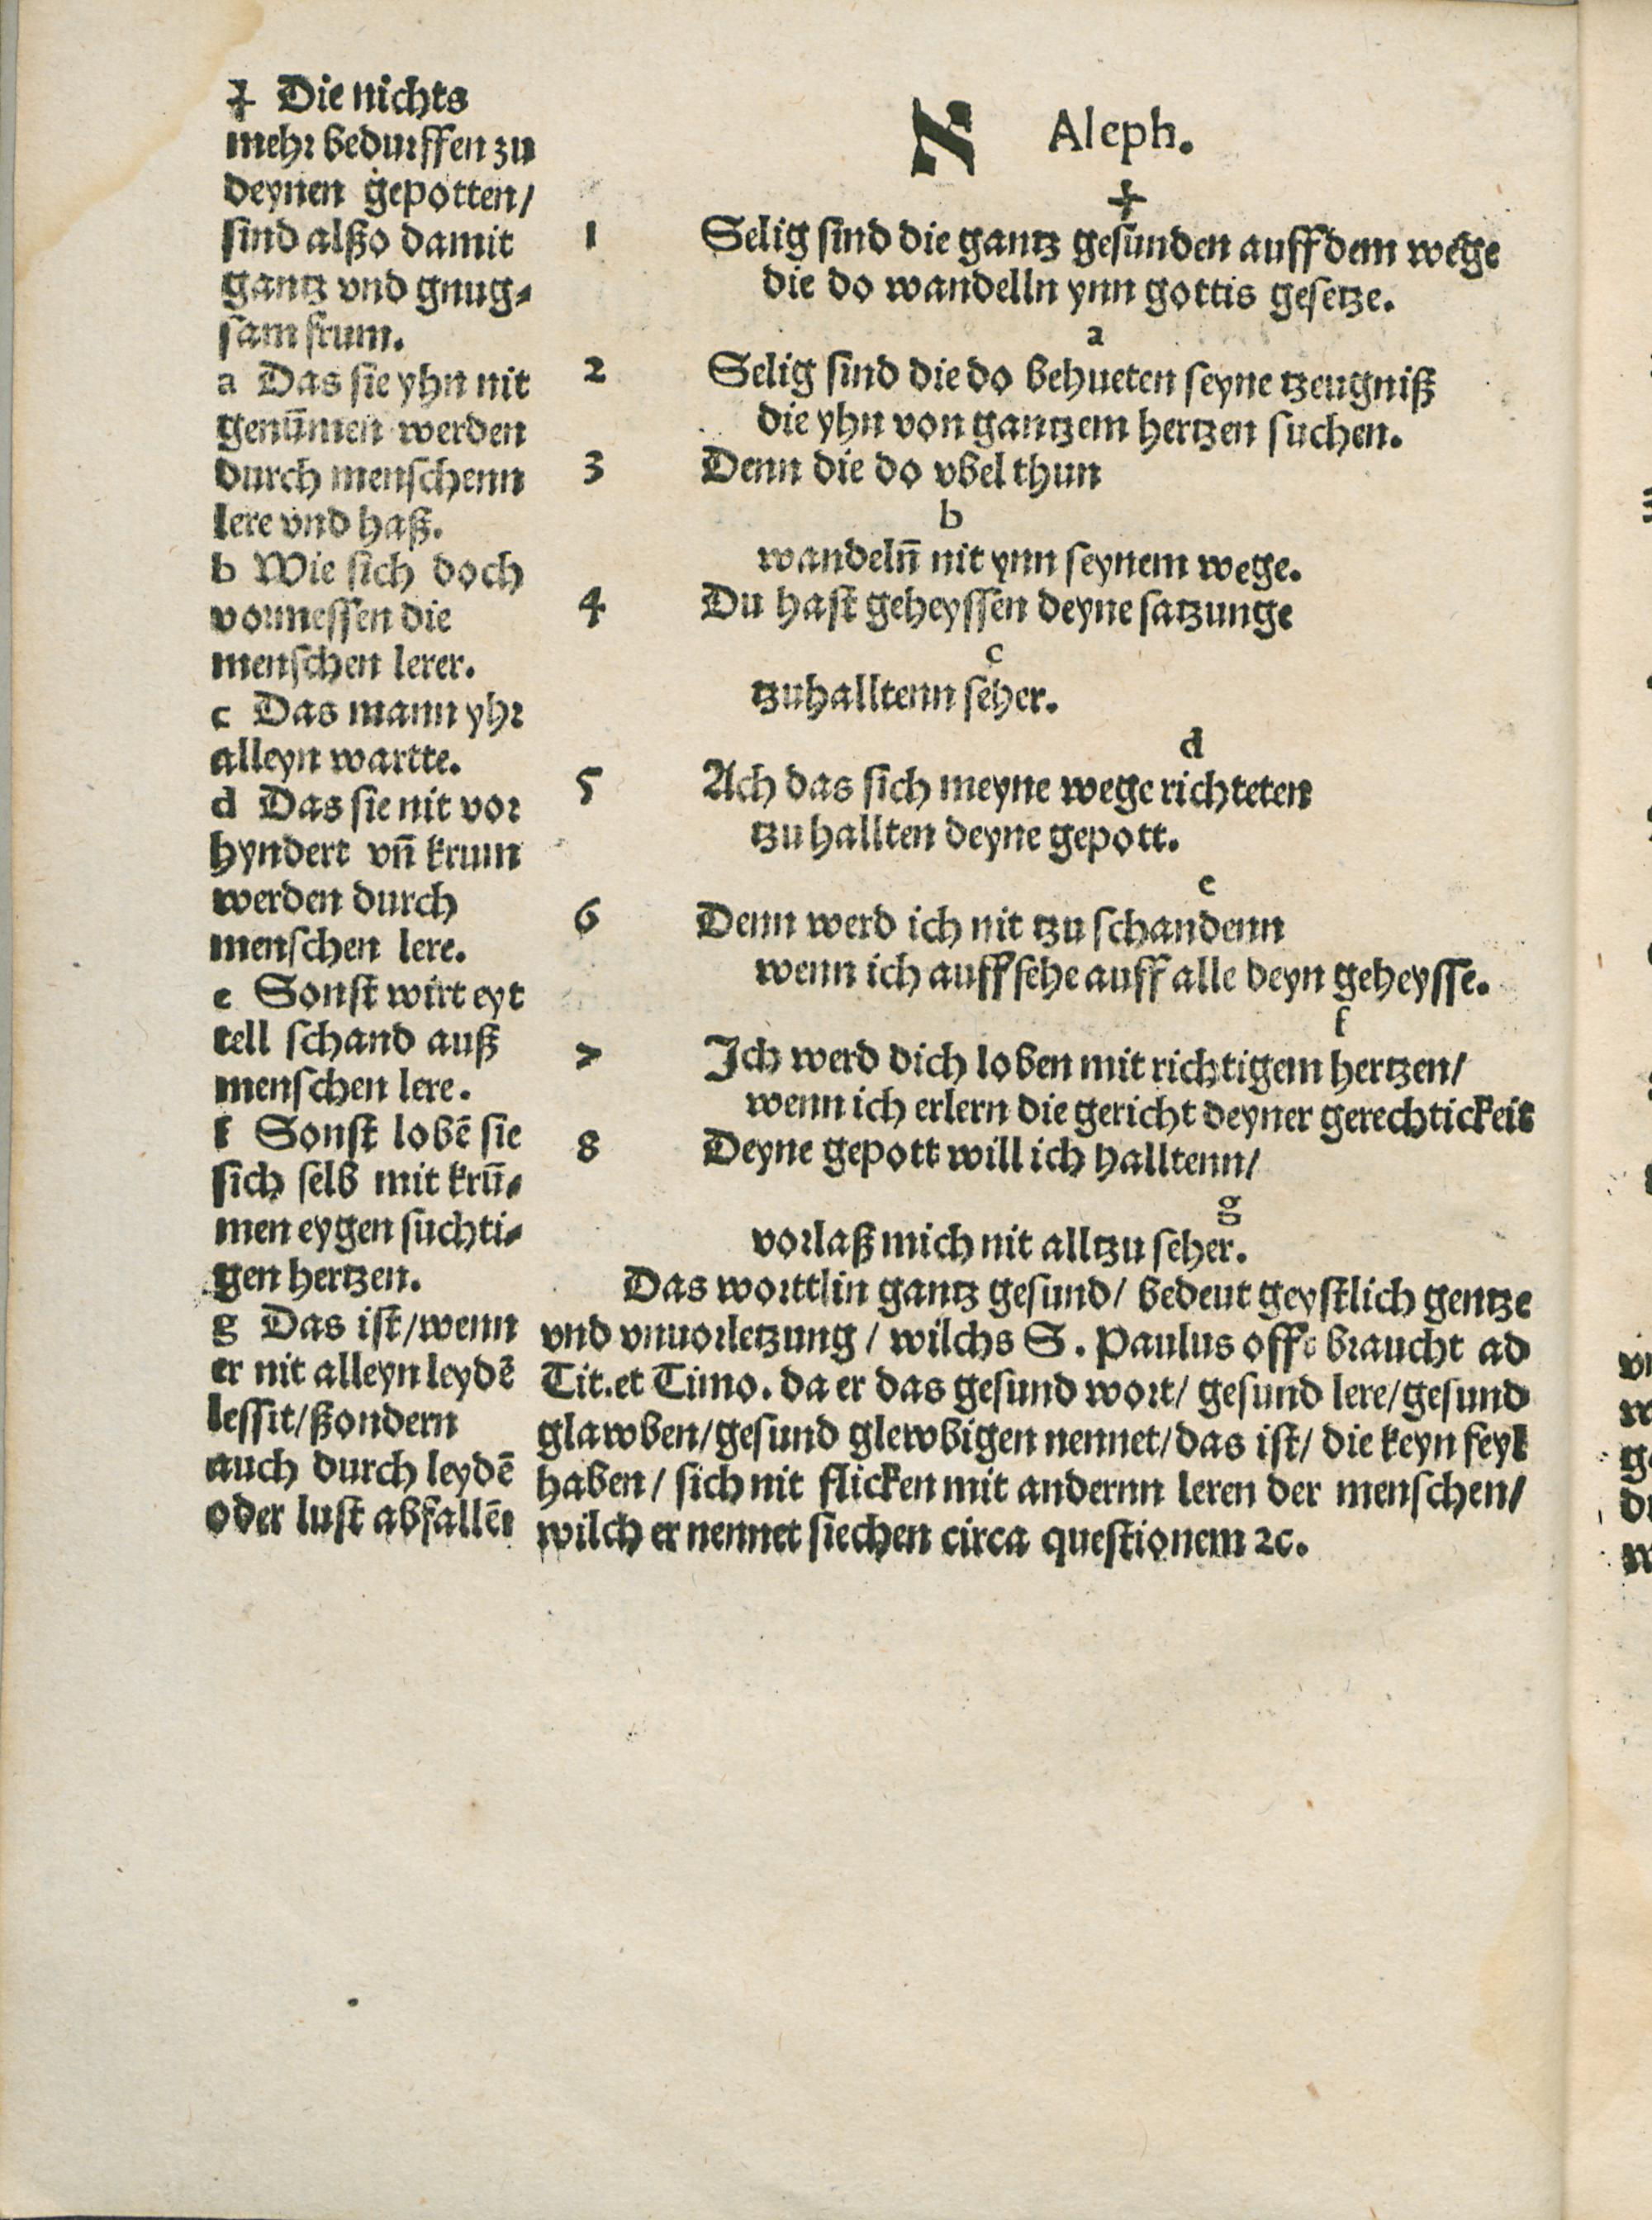 ☩ Die nichts
mehr bedurffen zu
deynen gepotten/
sind alßo damit
gantz vnd gnug⸗
sam frum.
a Das sie yhn nit
genūmen werden
durch menschenn
lere vnd haß.
b Wie sich doch
vormessen die
menschen lerer.
c Das mann yhr
alleyn wartte.
d Das sie nit vor
hyndert vn̄ krum
werden durch
menschen lere.
e Sonst wirt eyt
tell schand auß
menschen lere.
f Sonst lobē sie
sich selb mit krū⸗
men eygen suchti⸗
gen hertzen.
g Das ist/wenn
er nit alleyn leydē
lessit/ßondern
auch durch leydē
oder lust abfallē.
א Aleph.
☩
1 Selig sind die gantz gesunden auff dem wege
die do wandelln ynn gottis gesetze.
a
2 Selig sind die do behueten seyne tzeugniß
die yhn von gantzem hertzen suchen.
3 Denn die do vbel thun
b
wandeln̄ nit ynn seynem wege.
4 Du hast geheyssen deyne satzunge
c
tzuhalltenn seher.
d
5 Ach das sich meyne wege richteten
tzu hallten deyne gepott.
e
6 Denn werd ich nit tzu schandenn
wenn ich auff sehe auff alle deyn geheysse.
f
7 Ich werd dich loben mit richtigem hertzen/
wenn ich erlern die gericht deyner gerechtickeit
8 Deyne gepott will ich halltenn/
g
vorlaß mich nit alltzu seher.
Das worttlin gantz gesund/ bedeut geystlich gentze
vnd vnuorletzung/ wilchs S. Paulus offt braucht ad
Tit. et Timo. da er das gesund wort/ gesund lere/gesund
glawben/gesund glewbigen nennet/das ist/ die keyn feyl
haben/ sich nit flicken mit andernn leren der menschen/
wilch er nennet siechen circa questionem ꝛc.